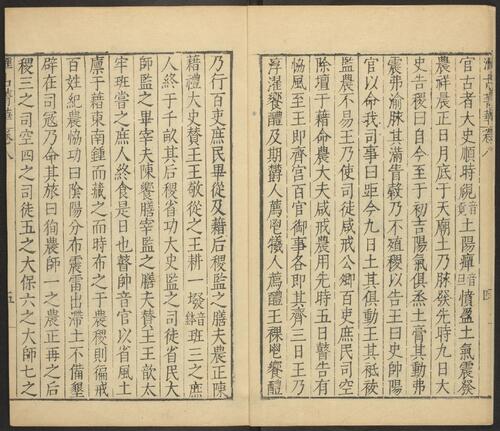 官古者大史順時覛音覓土陽癉音旦憤盈土氣震發
農祥晨正日月底于天廟土乃脉發先時九日大
史告稷曰自今至于初吉陽氣俱烝土膏其動弗
震弗渝脉其滿眚糓乃不殖稷以告王曰史帥陽
官以命我司事曰距今九日土其俱動王其祗祓
監農不易王乃使司徒咸戒公卿百吏庶民司空
除壇于藉命農大夫咸戒農用先時五日瞽告有
恊風至王即齊宫百官御事各即其齊三日王乃
淳濯饗醴及期鬱人薦鬯犧人薦醴王稞鬯饗醴
乃行百吏庶民畢從及藉后稷監之膳夫農正陳
藉禮大史贊王王敬從之王耕一墢音鉢班三之庶
人終于千畝其后稷省功大史監之司徒省民大
師監之畢宰夫陳饗膳宰監之膳夫贊王王歆太
牢班嘗之庶人終食是日也瞽帥音官以省風土
廪于藉東南鍾而藏之而時布之于農稷則徧戒
百姓紀農恊功曰陰陽分布震雷出滯土不備墾
辟在司冦乃命其旅曰徇農師一之農正再之后
稷三之司空四之司徒五之大保六之大師七之
卷八
五